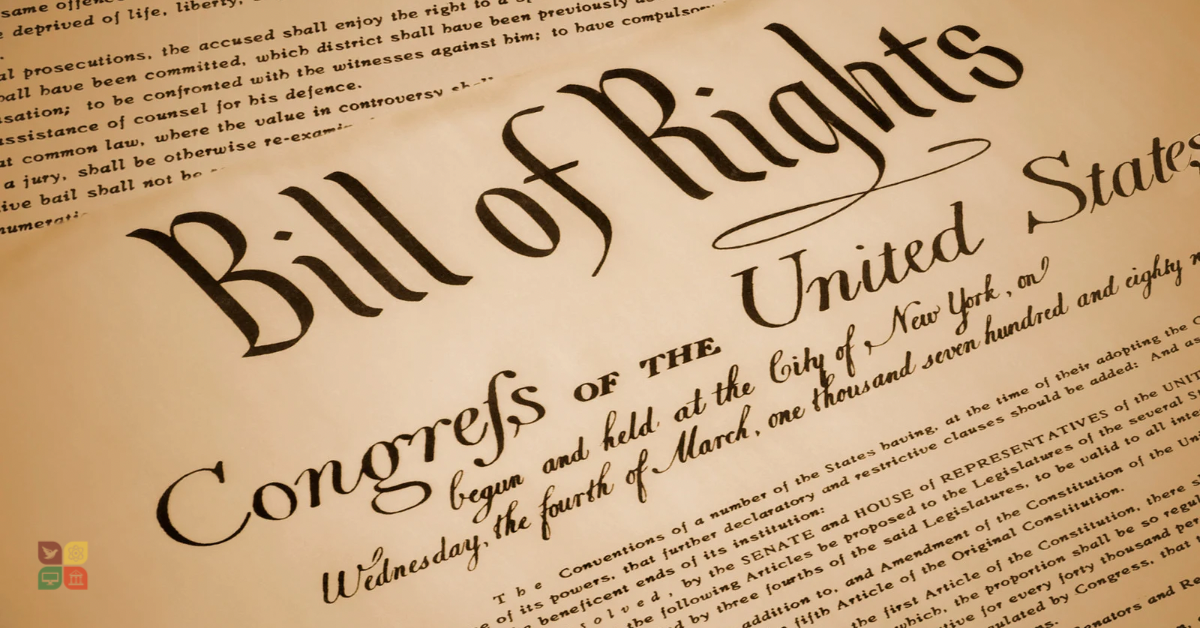 same offen
deprived of life, liberty,
al prosecutions, the accused shall enjoy the right to a
hall have been committed, which district shall have been previously
sation; to be confronted with the witnesses against him; to have compulsor
assistance of counsel for his defence.
at common law, where the value in controversy
a jury, shall be otherwise re-exami
ive bail shall not be
numerati
Bill of Rights
Congreſs OF THE United States
begun and held at the City of New York, on
Wednesday, the fourth of March, one thousand seven hundred and eighty n
The Conventions of a number of the States having, at the time of their adopting the C
of its powers, that further declaratory and restrictive clauses should be added: And as
beneficent ends of its institution:
olved, by the SENATE and HOUSE of REPRESENTATIVES of the UNIT
following Articles be proposed to the Legislatures of the several St
by three fourths of the said Legislatures, to be valid to all inte
addition to, and Amendment of the Constitution of the Uni
fifth Article of the Original Constitution.
the first Article of the Constitution, there s
which, the proportion shall be so regu
tive for every forty thousand per
ulated by Congress, that t
enators and Re